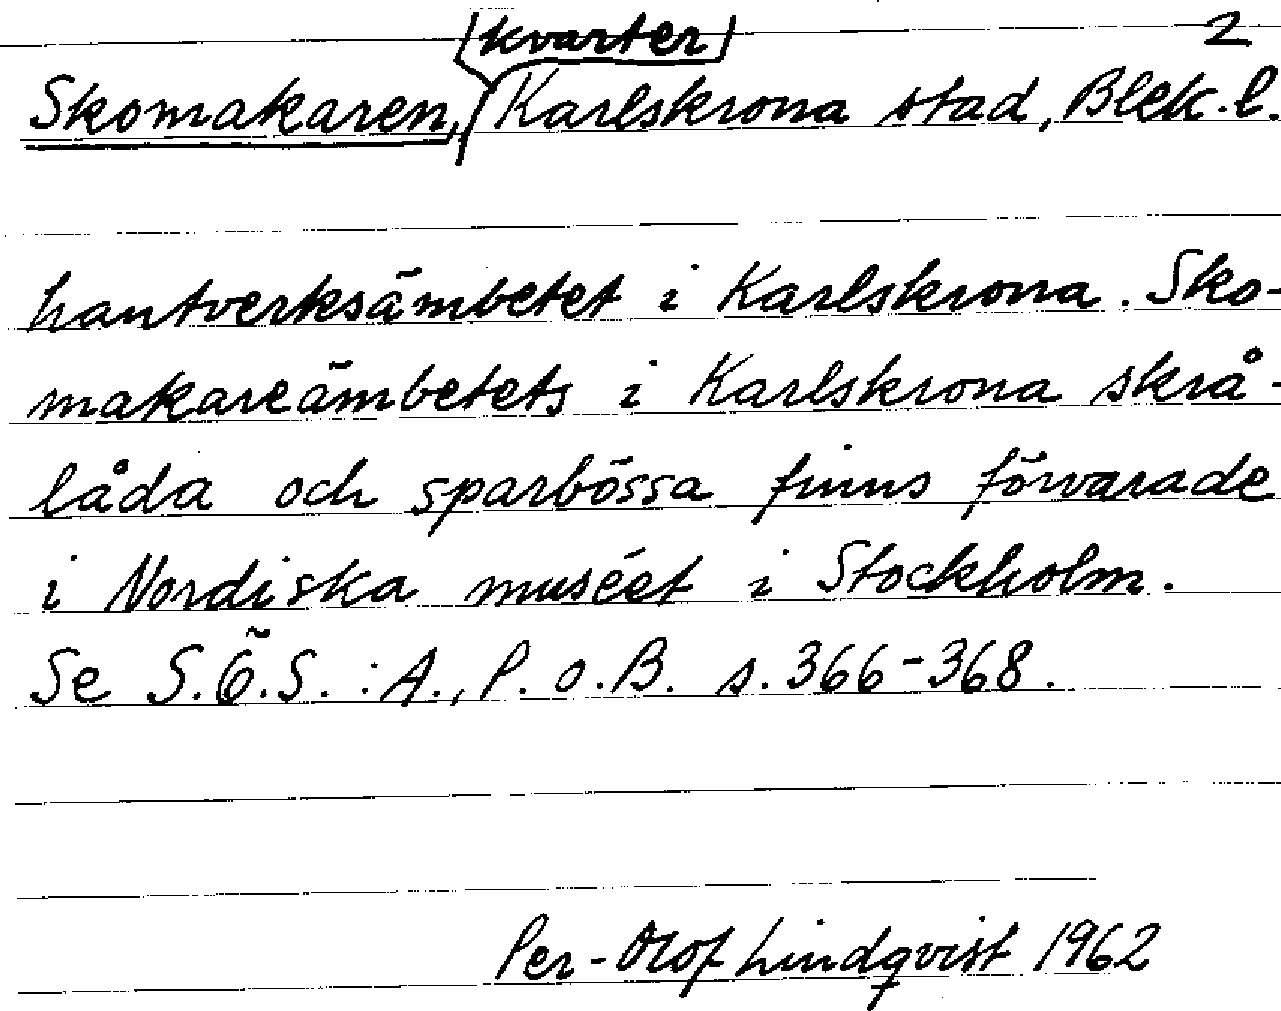 kvarter 2
Skomakaren, Karlskrona stad, Blek. l.
hantverksämbetet i Karlskrona. Sko-
makareämbetets i Karlskrona skrå-
låda och sparbössa finns förvarade
i Nordiska muséet i Stockholm.
Se S.Ö.S.: A., P. o. B. s. 366-368.
Per-Olof Lindqvist 1962